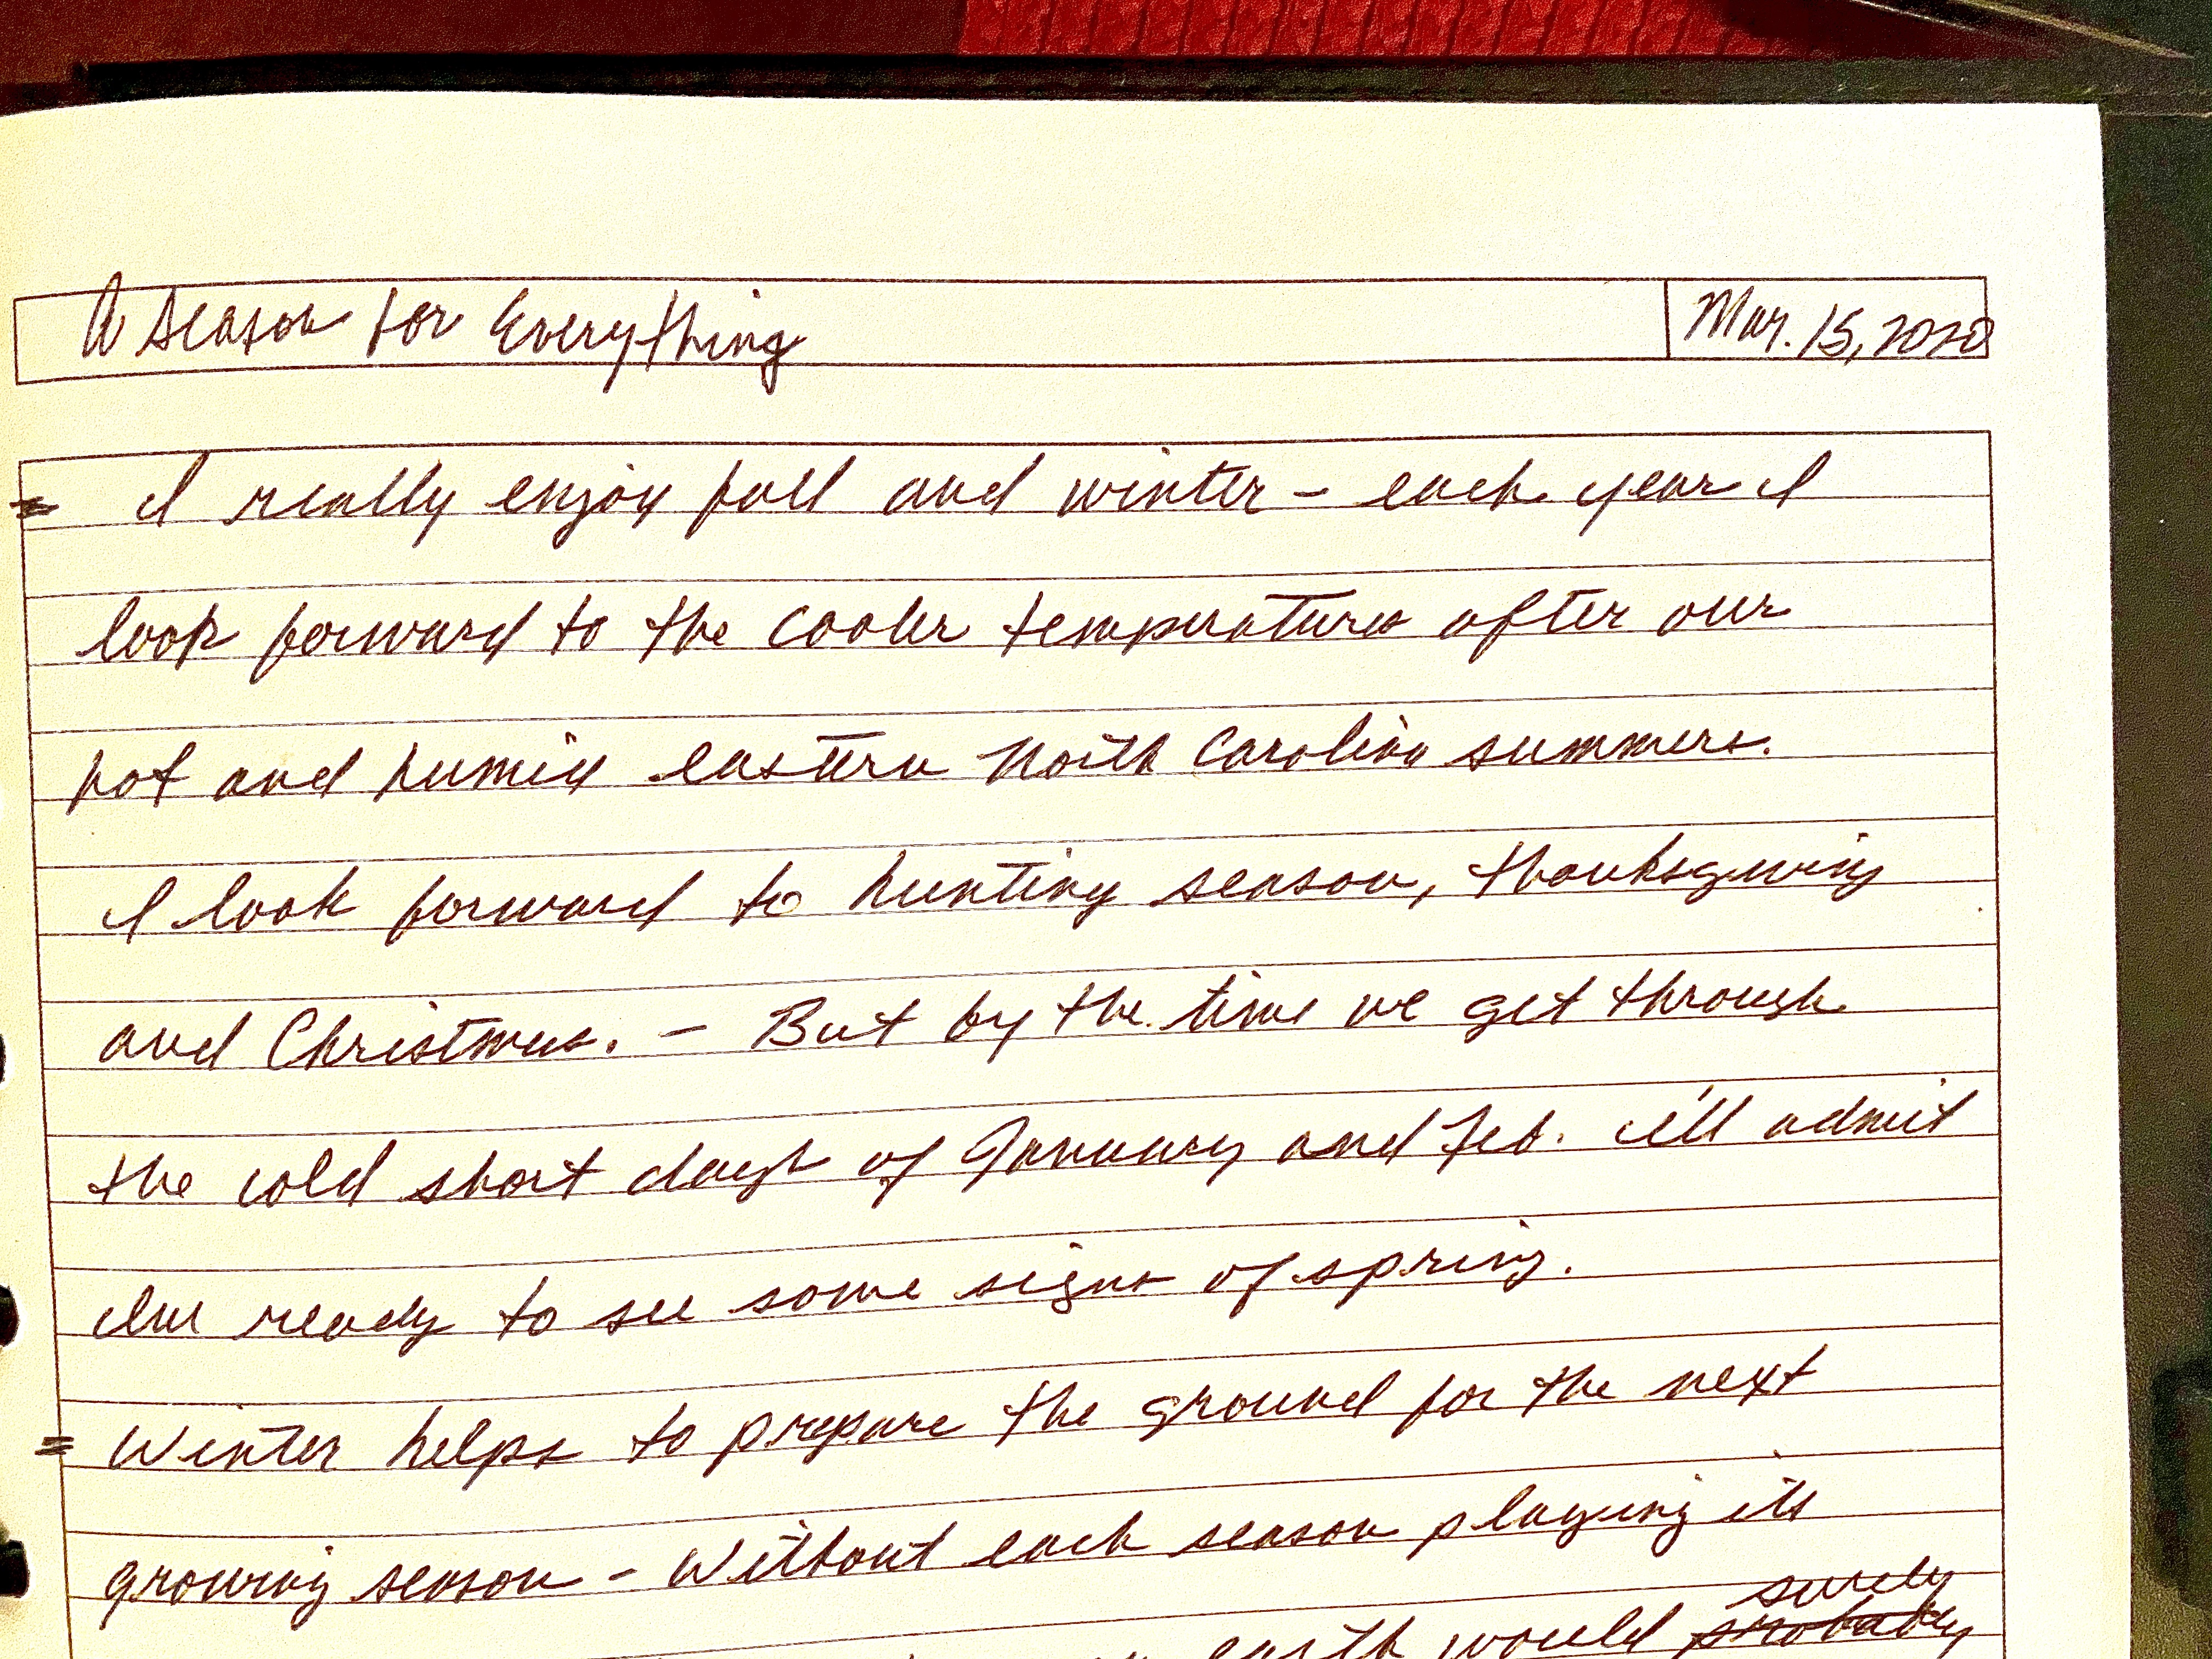 A Season for Everything
Mar. 15, 2020
= I really enjoy fall and winter - each year I
look forward to the cooler temperatures after our
hot and humid eastern North Carolina summers.
I look forward to hunting season, Thanksgiving
and Christmas. - But by the time we get through
the cold short days of January and Feb. I'll admit
I'm ready to see some signs of spring.
= Winter helps to prepare the ground for the next
growing season - Without each season playing its
surely
earth would probably